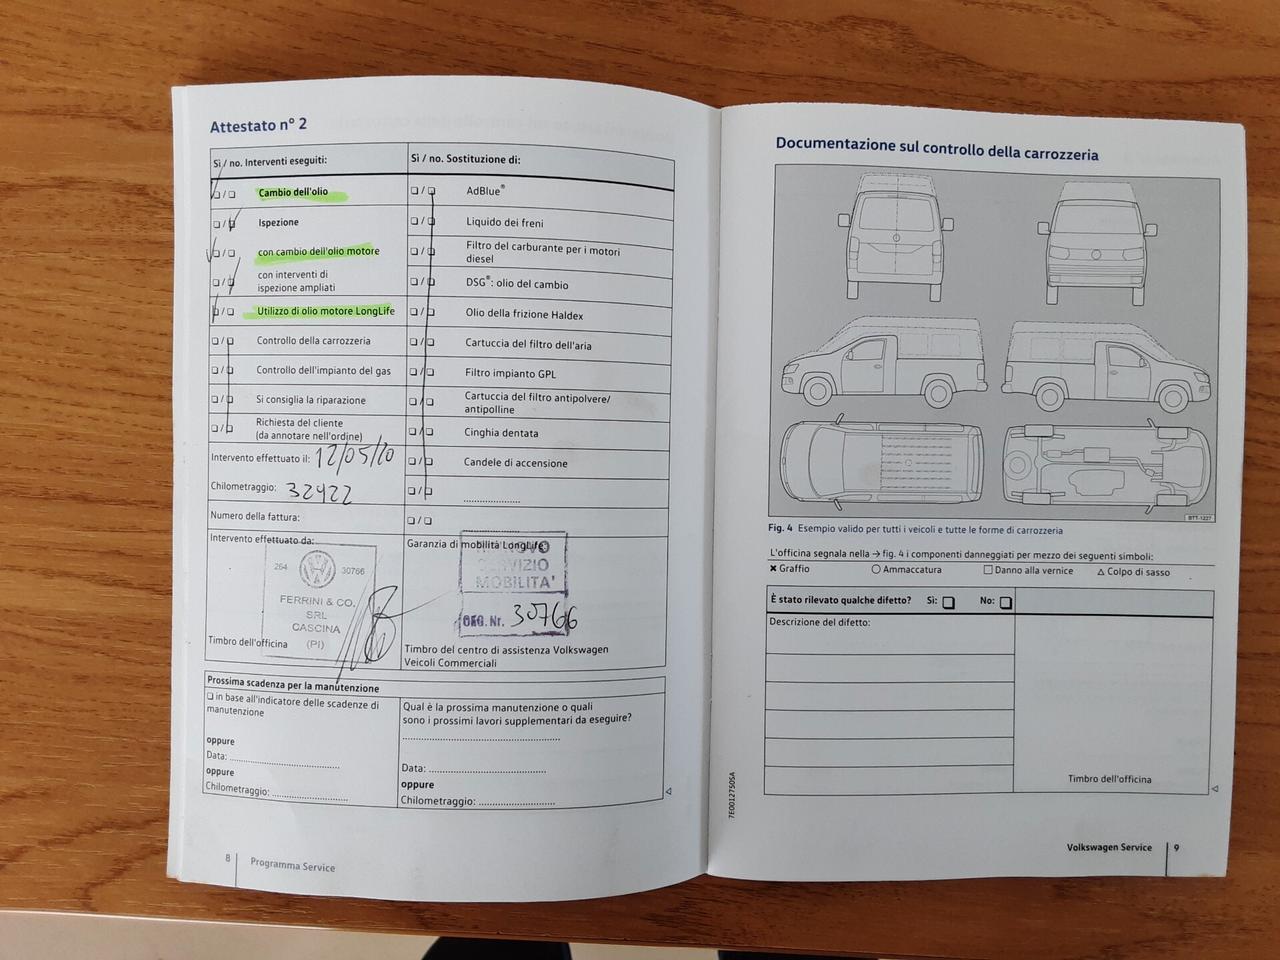 Attestato n° 2
Sì / no. Interventi eseguiti:
Cambio dell'olio
Ispezione
con cambio dell'olio motore
con interventi di
ispezione ampliati
Utilizzo di olio motore LongLife
Controllo della carrozzeria
Controllo dell'impianto del gas
Si consiglia la riparazione
Richiesta del cliente
(da annotare nell'ordine)
Intervento effettuato il: 12/05/20
Chilometraggio: 32422
Numero della fattura:
Intervento effettuato da:
264 30766
FERRINI & CO.
SRL
CASCINA
(PI)
Timbro dell'officina
Sì / no. Sostituzione di:
AdBlue®
Liquido dei freni
Filtro del carburante per i motori
diesel
DSG®: olio del cambio
Olio della frizione Haldex
Cartuccia del filtro dell'aria
Filtro impianto GPL
Cartuccia del filtro antipolvere/
antipolline
Cinghia dentata
Candele di accensione
Garanzia di mobilità LongLife
SERVIZIO
MOBILITA'
Nr. 30766
Timbro del centro di assistenza Volkswagen
Veicoli Commerciali
Prossima scadenza per la manutenzione
in base all'indicatore delle scadenze di
manutenzione
oppure
Data:
oppure
Chilometraggio:
Qual è la prossima manutenzione o quali
sono i prossimi lavori supplementari da eseguire?
Data:
oppure
Chilometraggio:
8 Programma Service
Documentazione sul controllo della carrozzeria
BTT-1227
Fig. 4 Esempio valido per tutti i veicoli e tutte le forme di carrozzeria
L'officina segnala nella → fig. 4 i componenti danneggiati per mezzo dei seguenti simboli:
✖ Graffio ○ Ammaccatura □ Danno alla vernice △ Colpo di sasso
È stato rilevato qualche difetto? Sì: No:
Descrizione del difetto:
Timbro dell'officina
7E0012750SA
Volkswagen Service 9